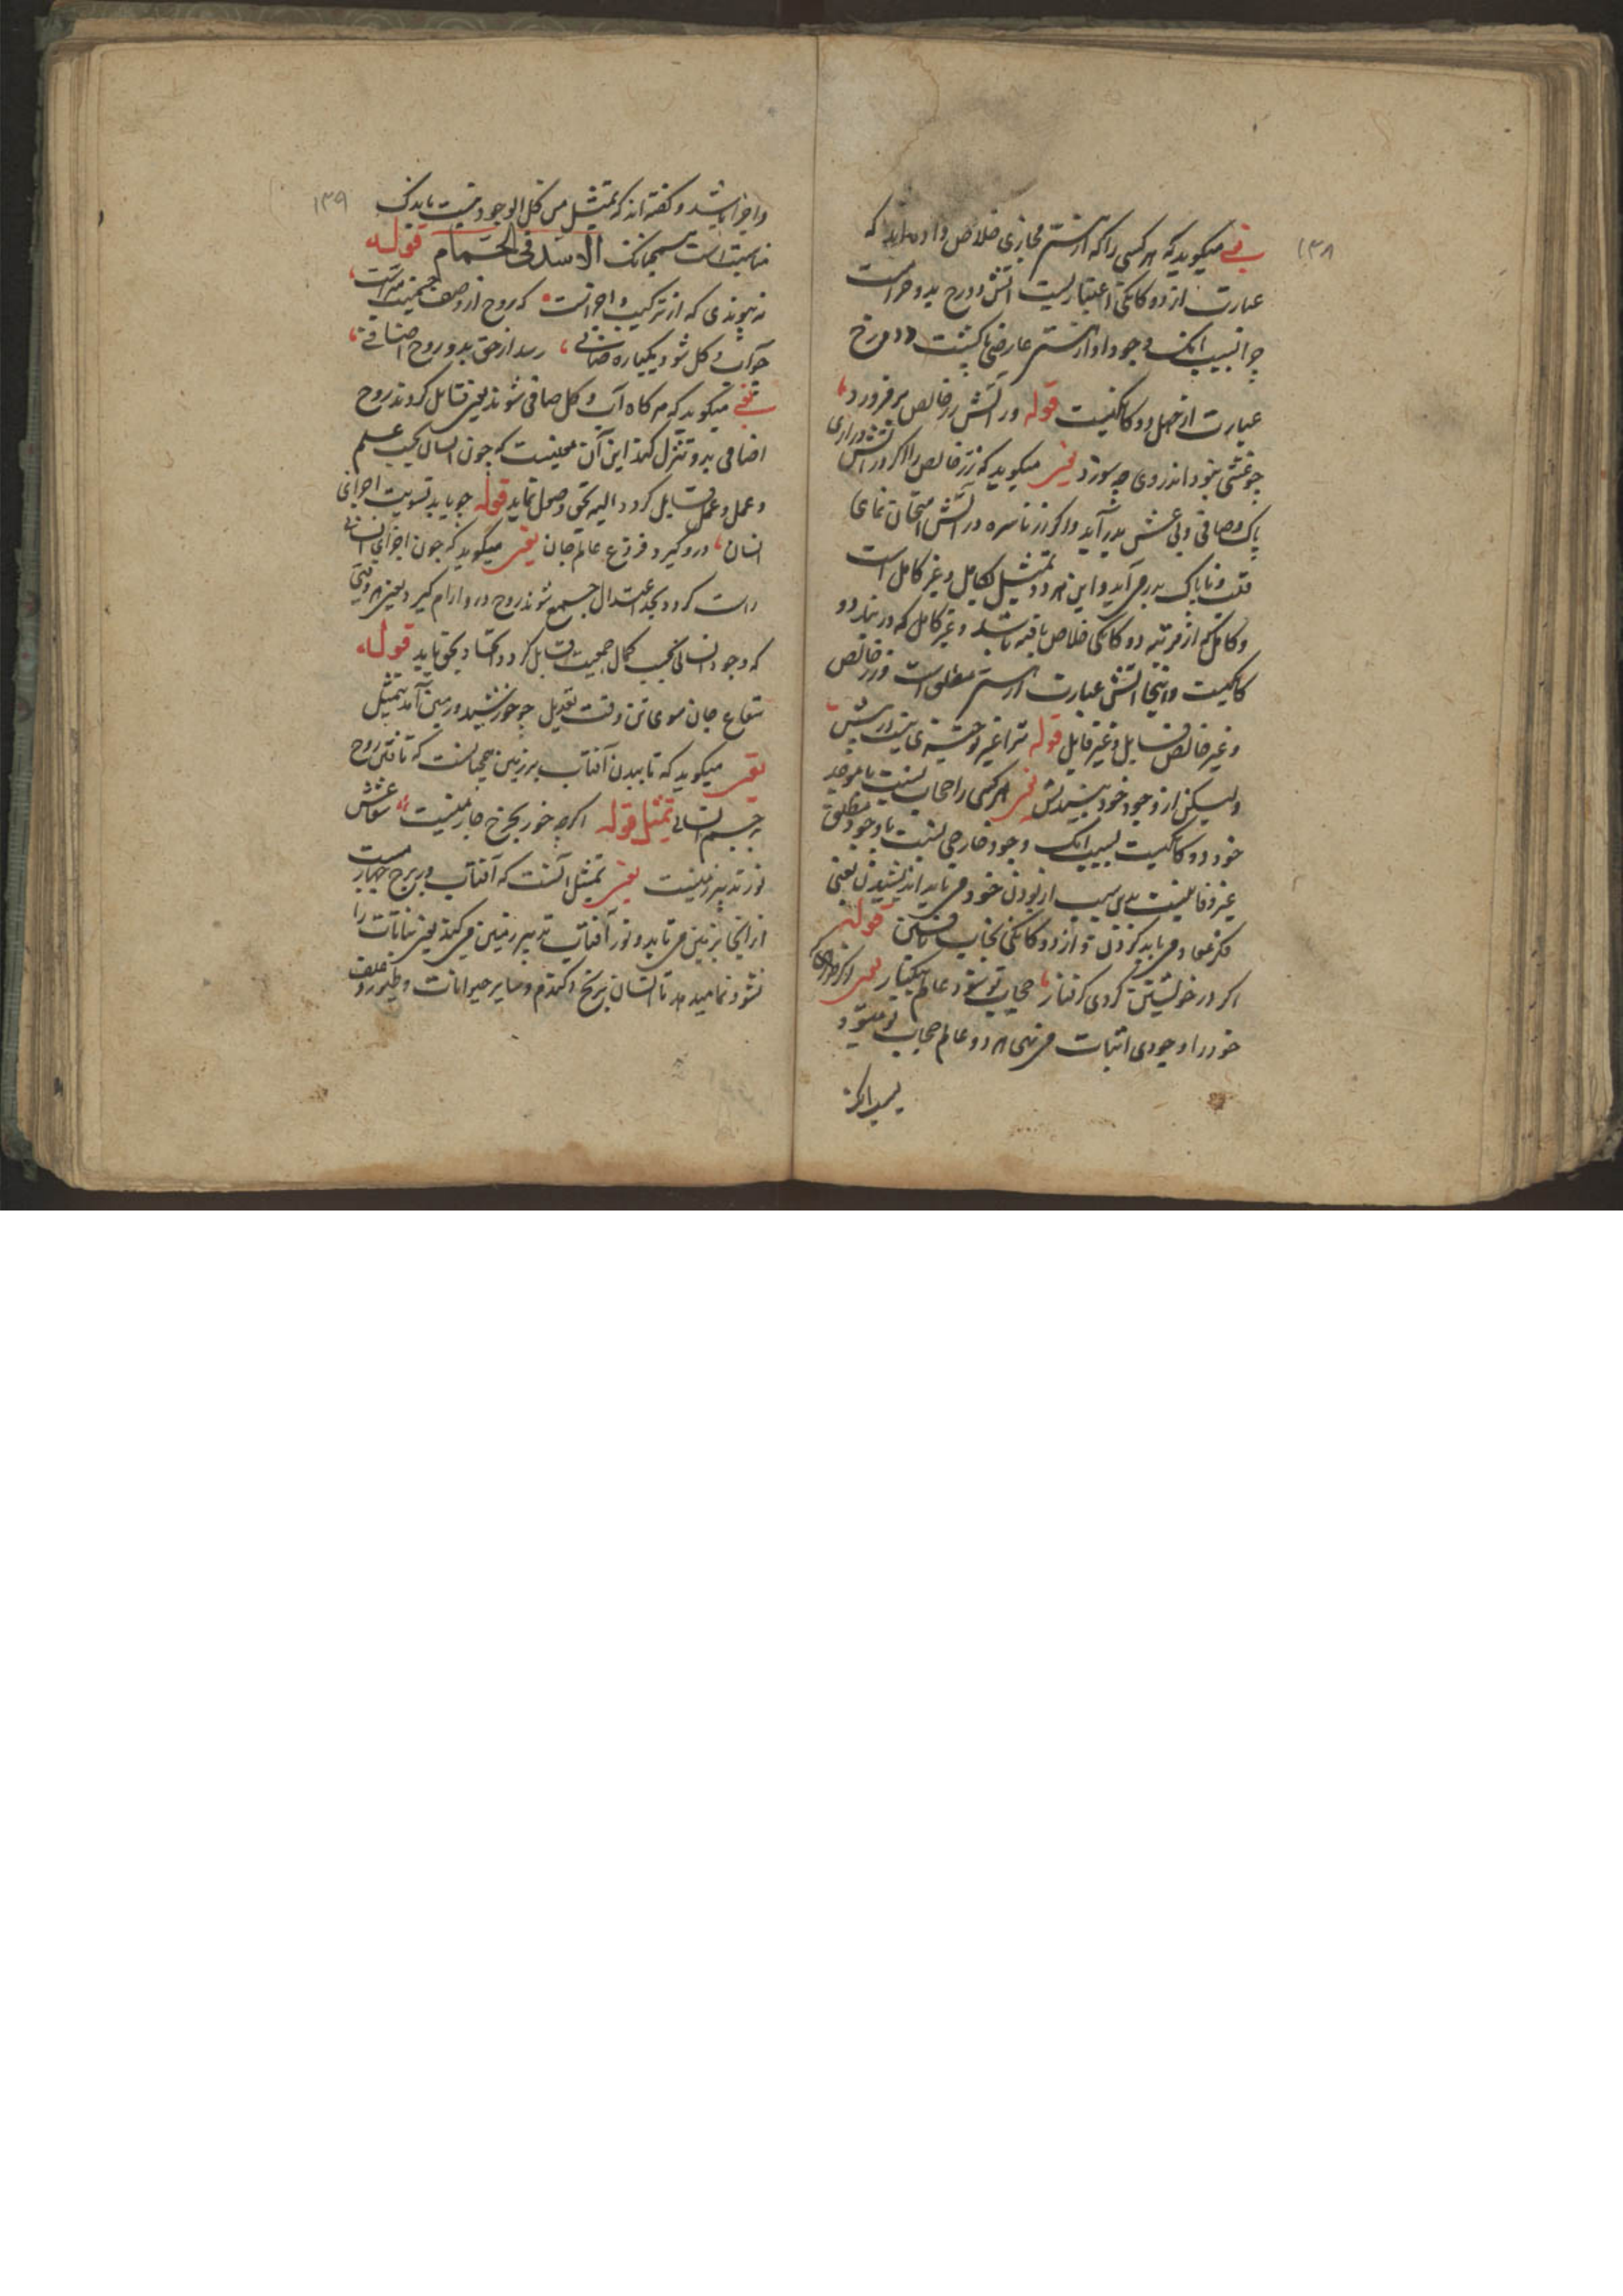 ۱۳۸
یعنی میکوید که هر کسی را که از هستی مجازی خلاص داده‌اند که
عبارت از دوکانکی اعتباریست اتش دوزخ بدو حرامست
چرا بسبب انک وجود او از هستی عارضی پاک شت و دوزخ
عبارت از اصل دوکانکیست قوله ور اتش زر خالص برفروزد
چو غشی نبود اندر وی چه سوزد یعنی میکوید که زر خالص را اکر در اتش در اری
پاک و صافی و بی غش بدر آید و اکر زر ناسره در آتش امتحان نمای
قلب و ناپاک بدر می آید و این هر دو تمثیل کامل و غیر کامل است
و کامل که از مرتبه دوکانکی خلاص یافته باشد و غیر کامل که در بند دو
کانکیست و اینجا اتش عبارت از هستی مطلق است و زر خالص
و غیر خالص قابل و غیر قابل قوله ترا غیر تو چیزی نیست در پیش
ولیکن از وجود خود بیندیش یعنی هر کسی را حجاب نسبت با موجد
خود دوکانکیست بسبب انک وجود خارجی نسبت با وجود مطلق
غیر و فانیست بدین سبب از بودن خود می باید اندیشیدن یعنی
فکر نمی باید کردن و از دوکانکی بجناب رفتن قوله
اکر در خویشتن کردی کرفتار حجاب تو شود عالم بیکبار یعنی اکر
خود را وجودی اثبات می نهی هر دو عالم حجاب تو میشود
بسبب انکه
۱۳۹
و اجزا باشد و کفته‌اند که تمثیل من کل الوجود نیست باندک
مناسبت است همچنانک الاسد فی الحمام قوله
نه پیوندی که از ترکیب و اجزاست که روح از وصف جسمیت مبراست
چو آب و کل شود یکباره صافی رسد از حق بدو روح اضافی
یعنی میکوید که هر کاه آب و کل صافی شوند یعنی قابل کردند روح
اضافی بدو تنزل کند این آن معنیست که چون انسان بحسب علم
و عمل و عمل قابل کردد البته بحق وصول نماید قوله چو یابد تسویت اجزای
انسان درو کیرد فروغ عالم جان یعنی میکوید که چون اجزای انسانی
راست کردد و بحد اعتدال جمع شوند روح درو ارام کیرد یعنی هر وقتی
که وجود انسانی بحسب کمال جمعیت قابل کردد اتحاد بحق یابد قوله
شعاع جان سوی تن وقت تعدیل چو خورشید و زمین آمد تمثیل
یعنی میکوید که تابیدن آفتاب بر زمین همچنانست که تافتن روح
بر جسم انسانی تمثیل قوله اکر چه خور بچرخ چارمینست شعاعش
نور تدبیر زمینست یعنی تمثیل انست که آفتاب در برج چهارمست
از انجا بزمین می تابد و نور آفتاب تدبیر زمین می کند یعنی نباتات را
نشو و نما میدهد تا انسان برنج و کندم و سایر حیوانات و طیور و علف